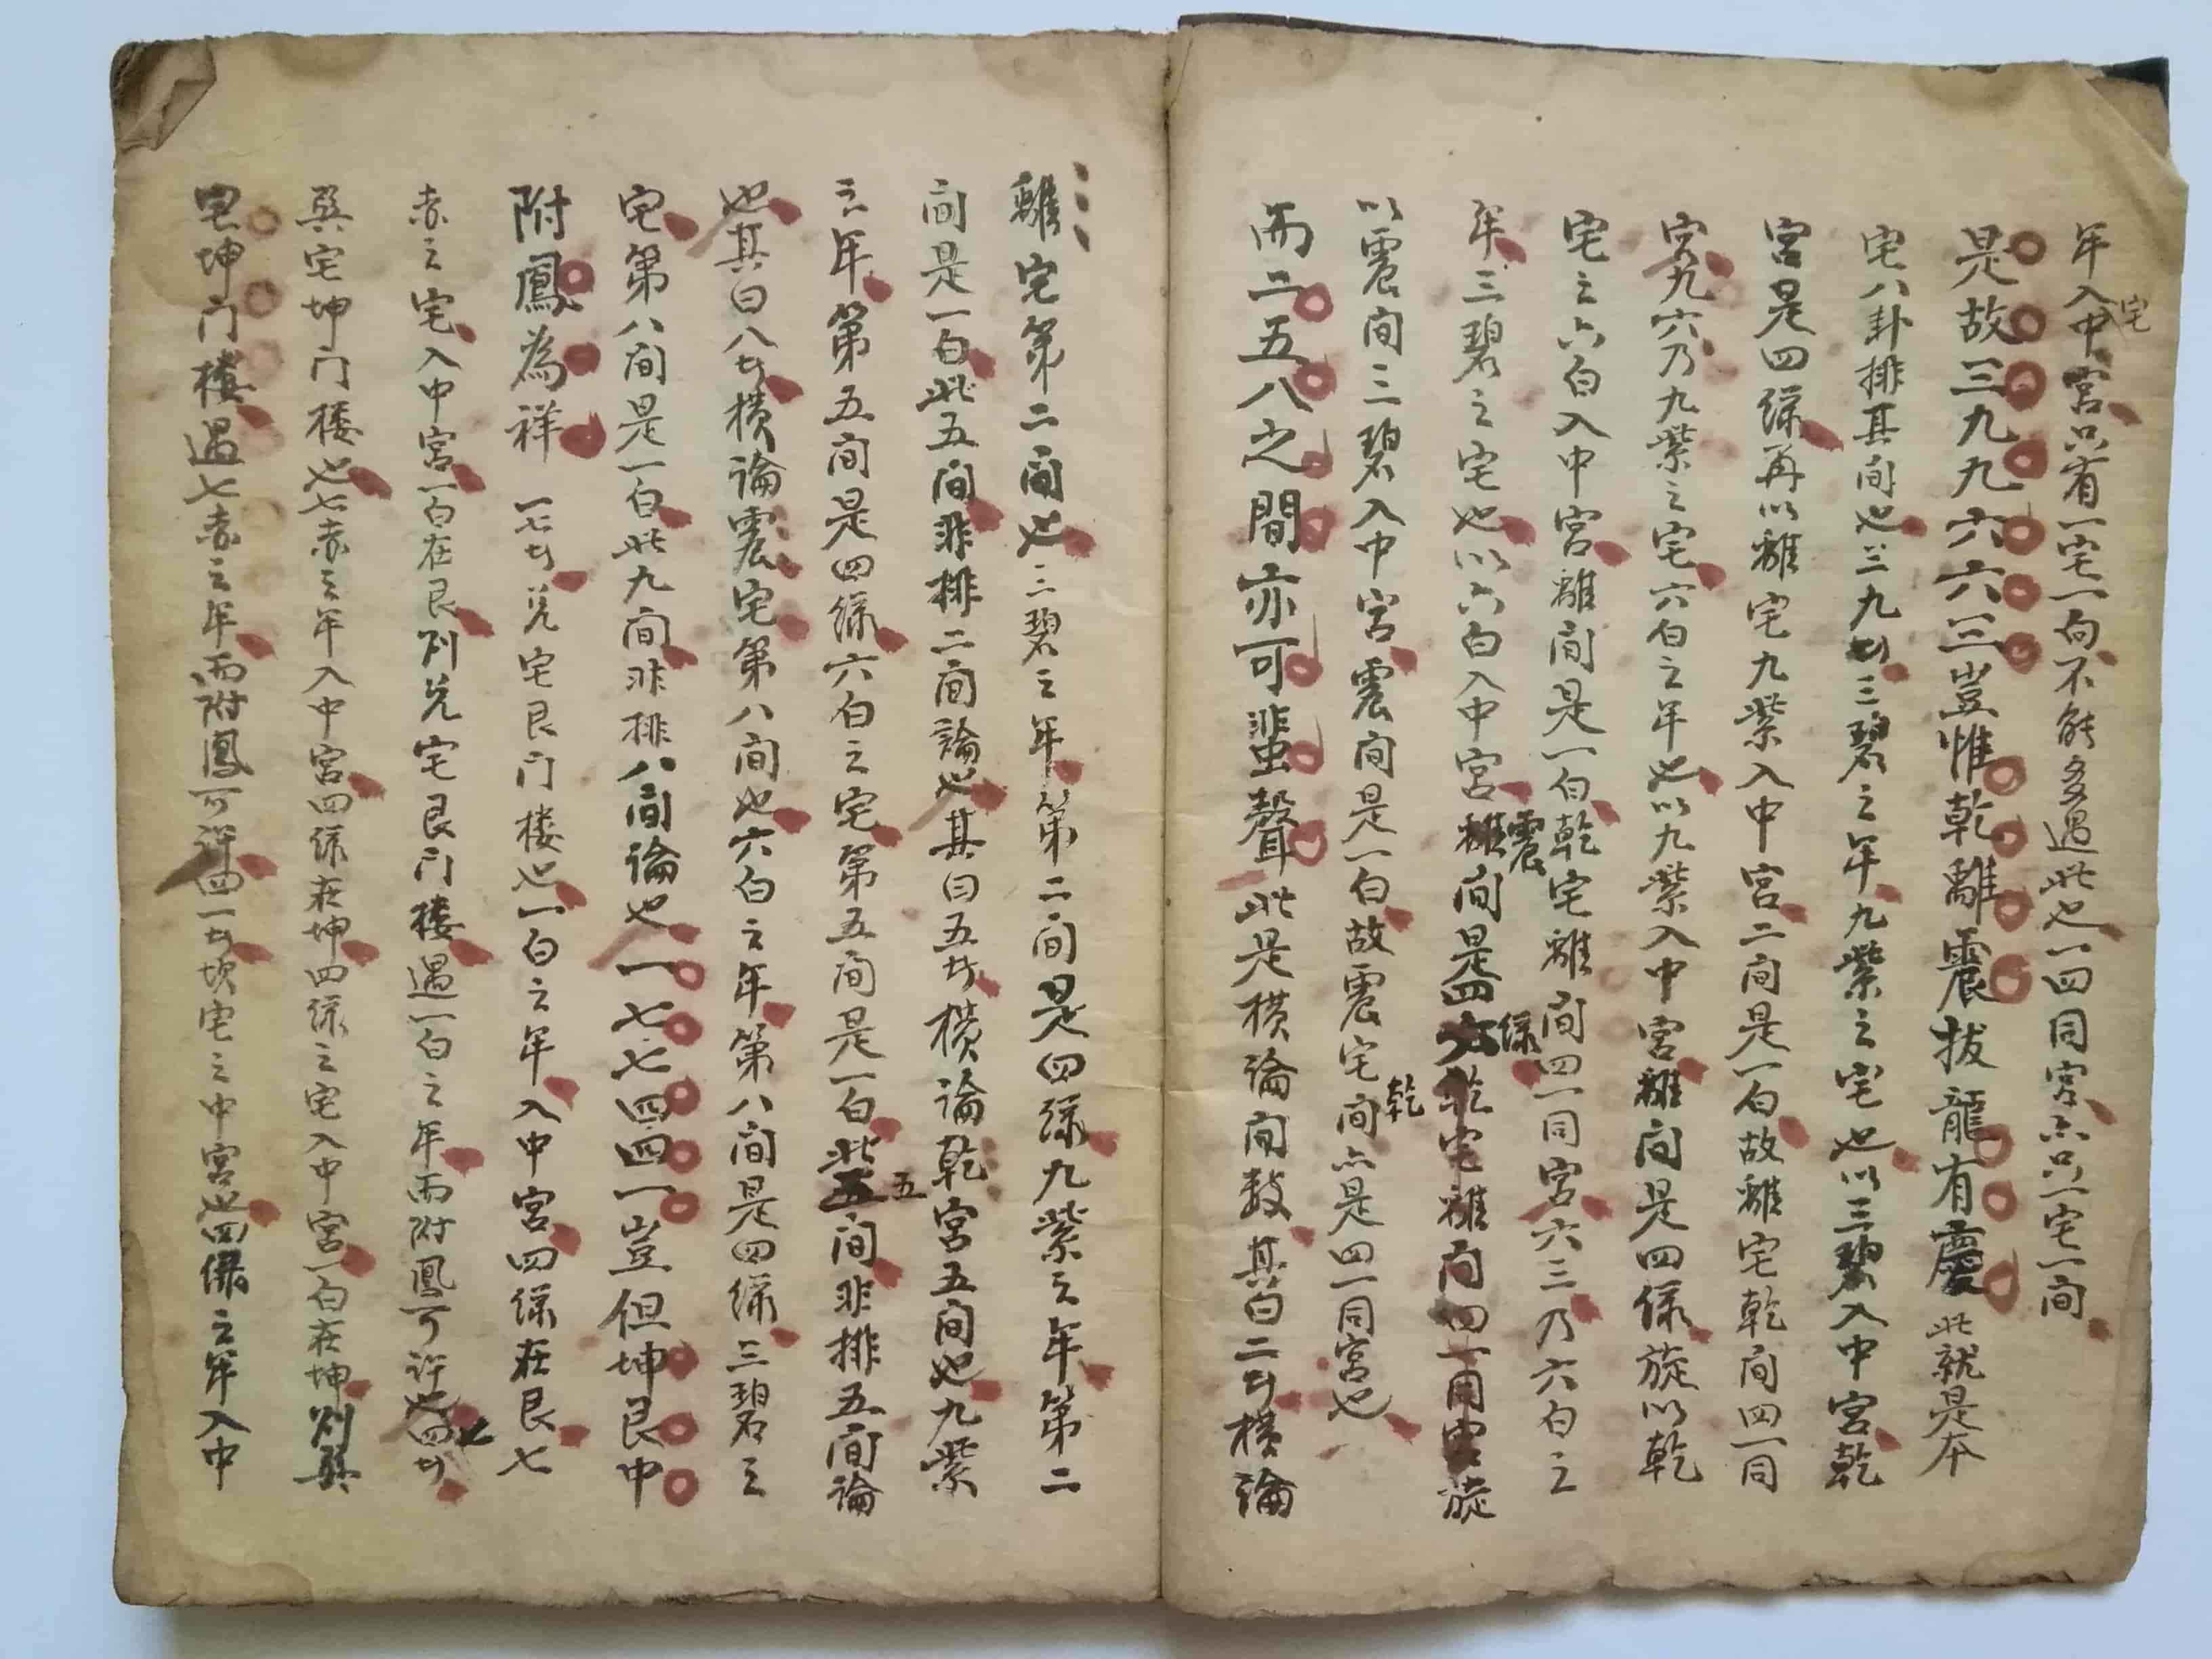 年入中宅宮只有一宅一向不能多過此也一四同宮亦只一宅一间
是故三九九六六三豈惟乾離震拔龍有慶此就是本
宅八卦排其间也三九者三碧之年九紫之宅也以三碧入中宮乾
宮是四緑再以離宅九紫入中宮二间是一白故離宅乾间四一同
宮九六乃九紫之宅六白之年也以九紫入中宮離间是四緑旋以乾
宅之六白入中宮離间是一白乾宅離间四一同宮六三乃六白之
年三碧之宅也以六白入中宮震间是四緑乾宅離间四一同宮旋
以震间三碧入中宮震间是一白故震宅乾间亦是四一同宮也
而二五八之間亦可蜚聲此是横論间数其曰二者横論
離宅第二间也三碧之年第二间是四緑九紫之年第二
间是一白此五间非排二间論也其曰五者横論乾宮五间也九紫
之年第五间是四緑六白之宅第五间是一白此五间非排五间論
也其曰八者横論震宅第八间也六白之年第八间是四緑三碧之
宅第八间是一白此九间非排八间論也一七七四四一豈但坤艮中
附鳳為祥 一七者兑宅艮门楼也一白之年入中宮四緑在艮七
赤之宅入中宮一白在艮则兑宅艮门楼遇一白之年而附鳳可许也四七者
巽宅坤门楼也七赤之年入中宮四緑在坤四緑之宅入中宮一白在坤则巽
宅坤门楼遇七赤之年而附鳳可许四一者坎宅之中宮也四緑之年入中